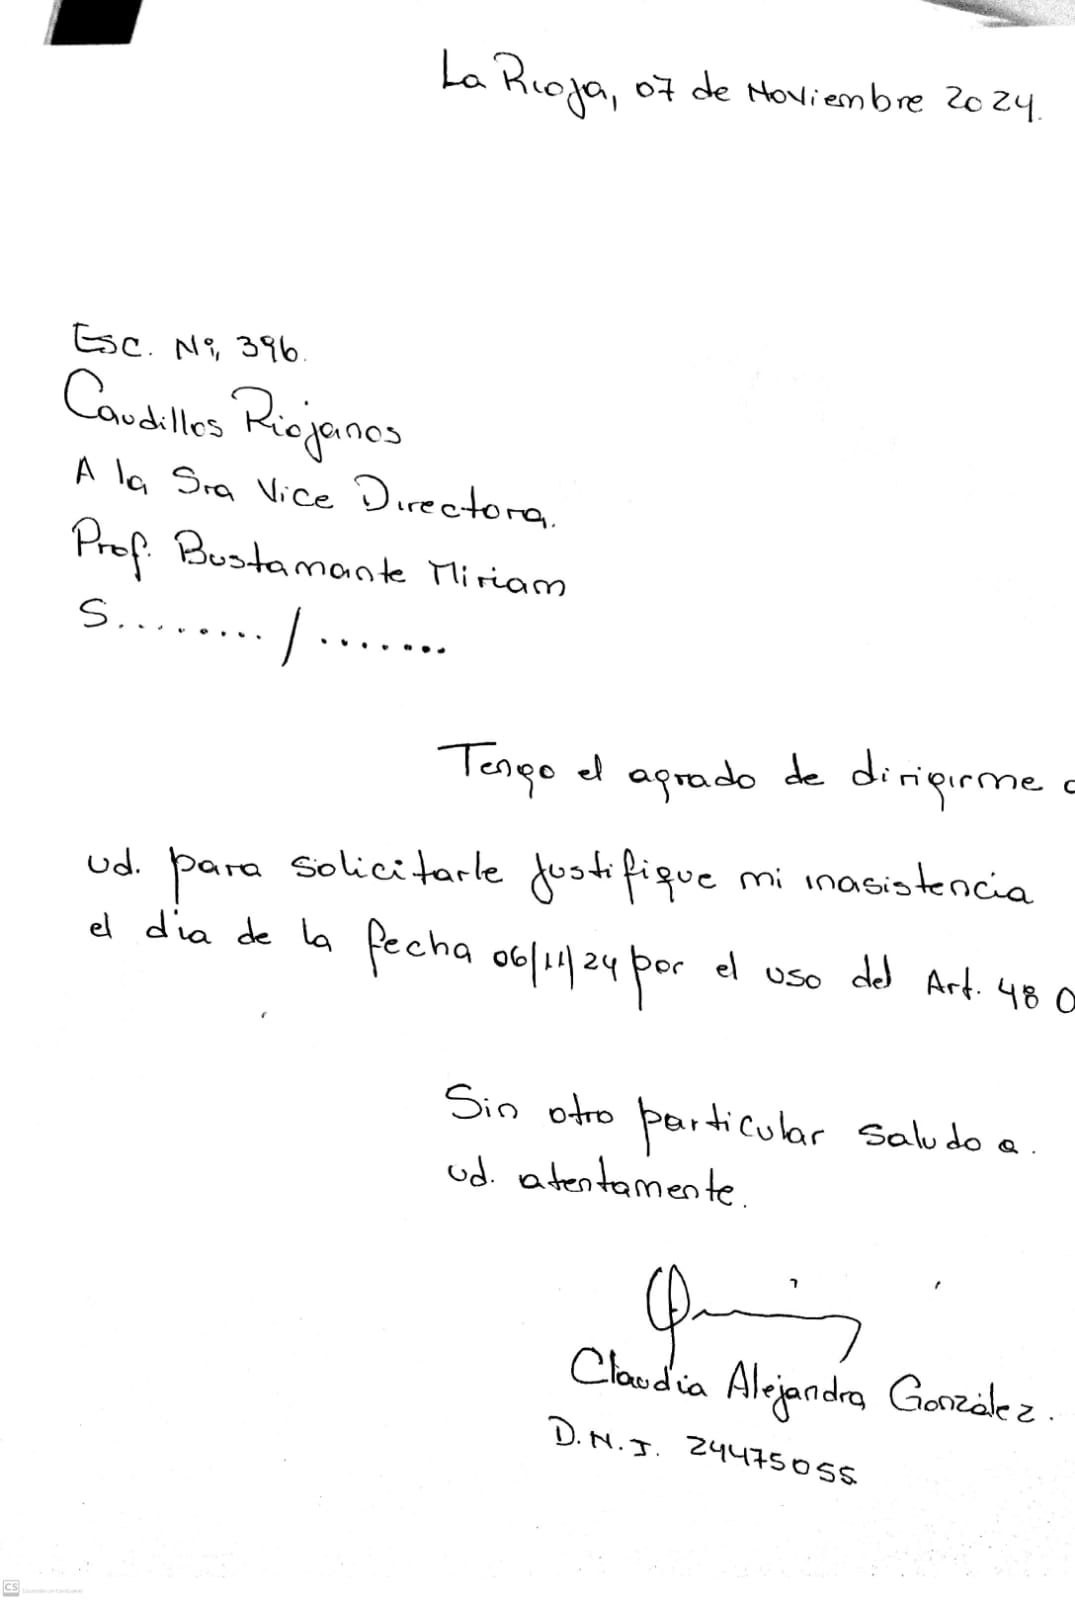 La Rioja, 07 de Noviembre 2024.
Esc. Nº, 396.
Caudillos Riojanos
A la Sra Vice Directora.
Prof. Bustamante Miriam
S........./.......
Tengo el agrado de dirigirme a
ud. para solicitarle justifique mi inasistencia
el día de la fecha 06/11/24 por el uso del Art. 48 O
Sin otro particular saludo a.
ud. atentamente.
Claudia Alejandra González.
D.N.I. 24475055
CS